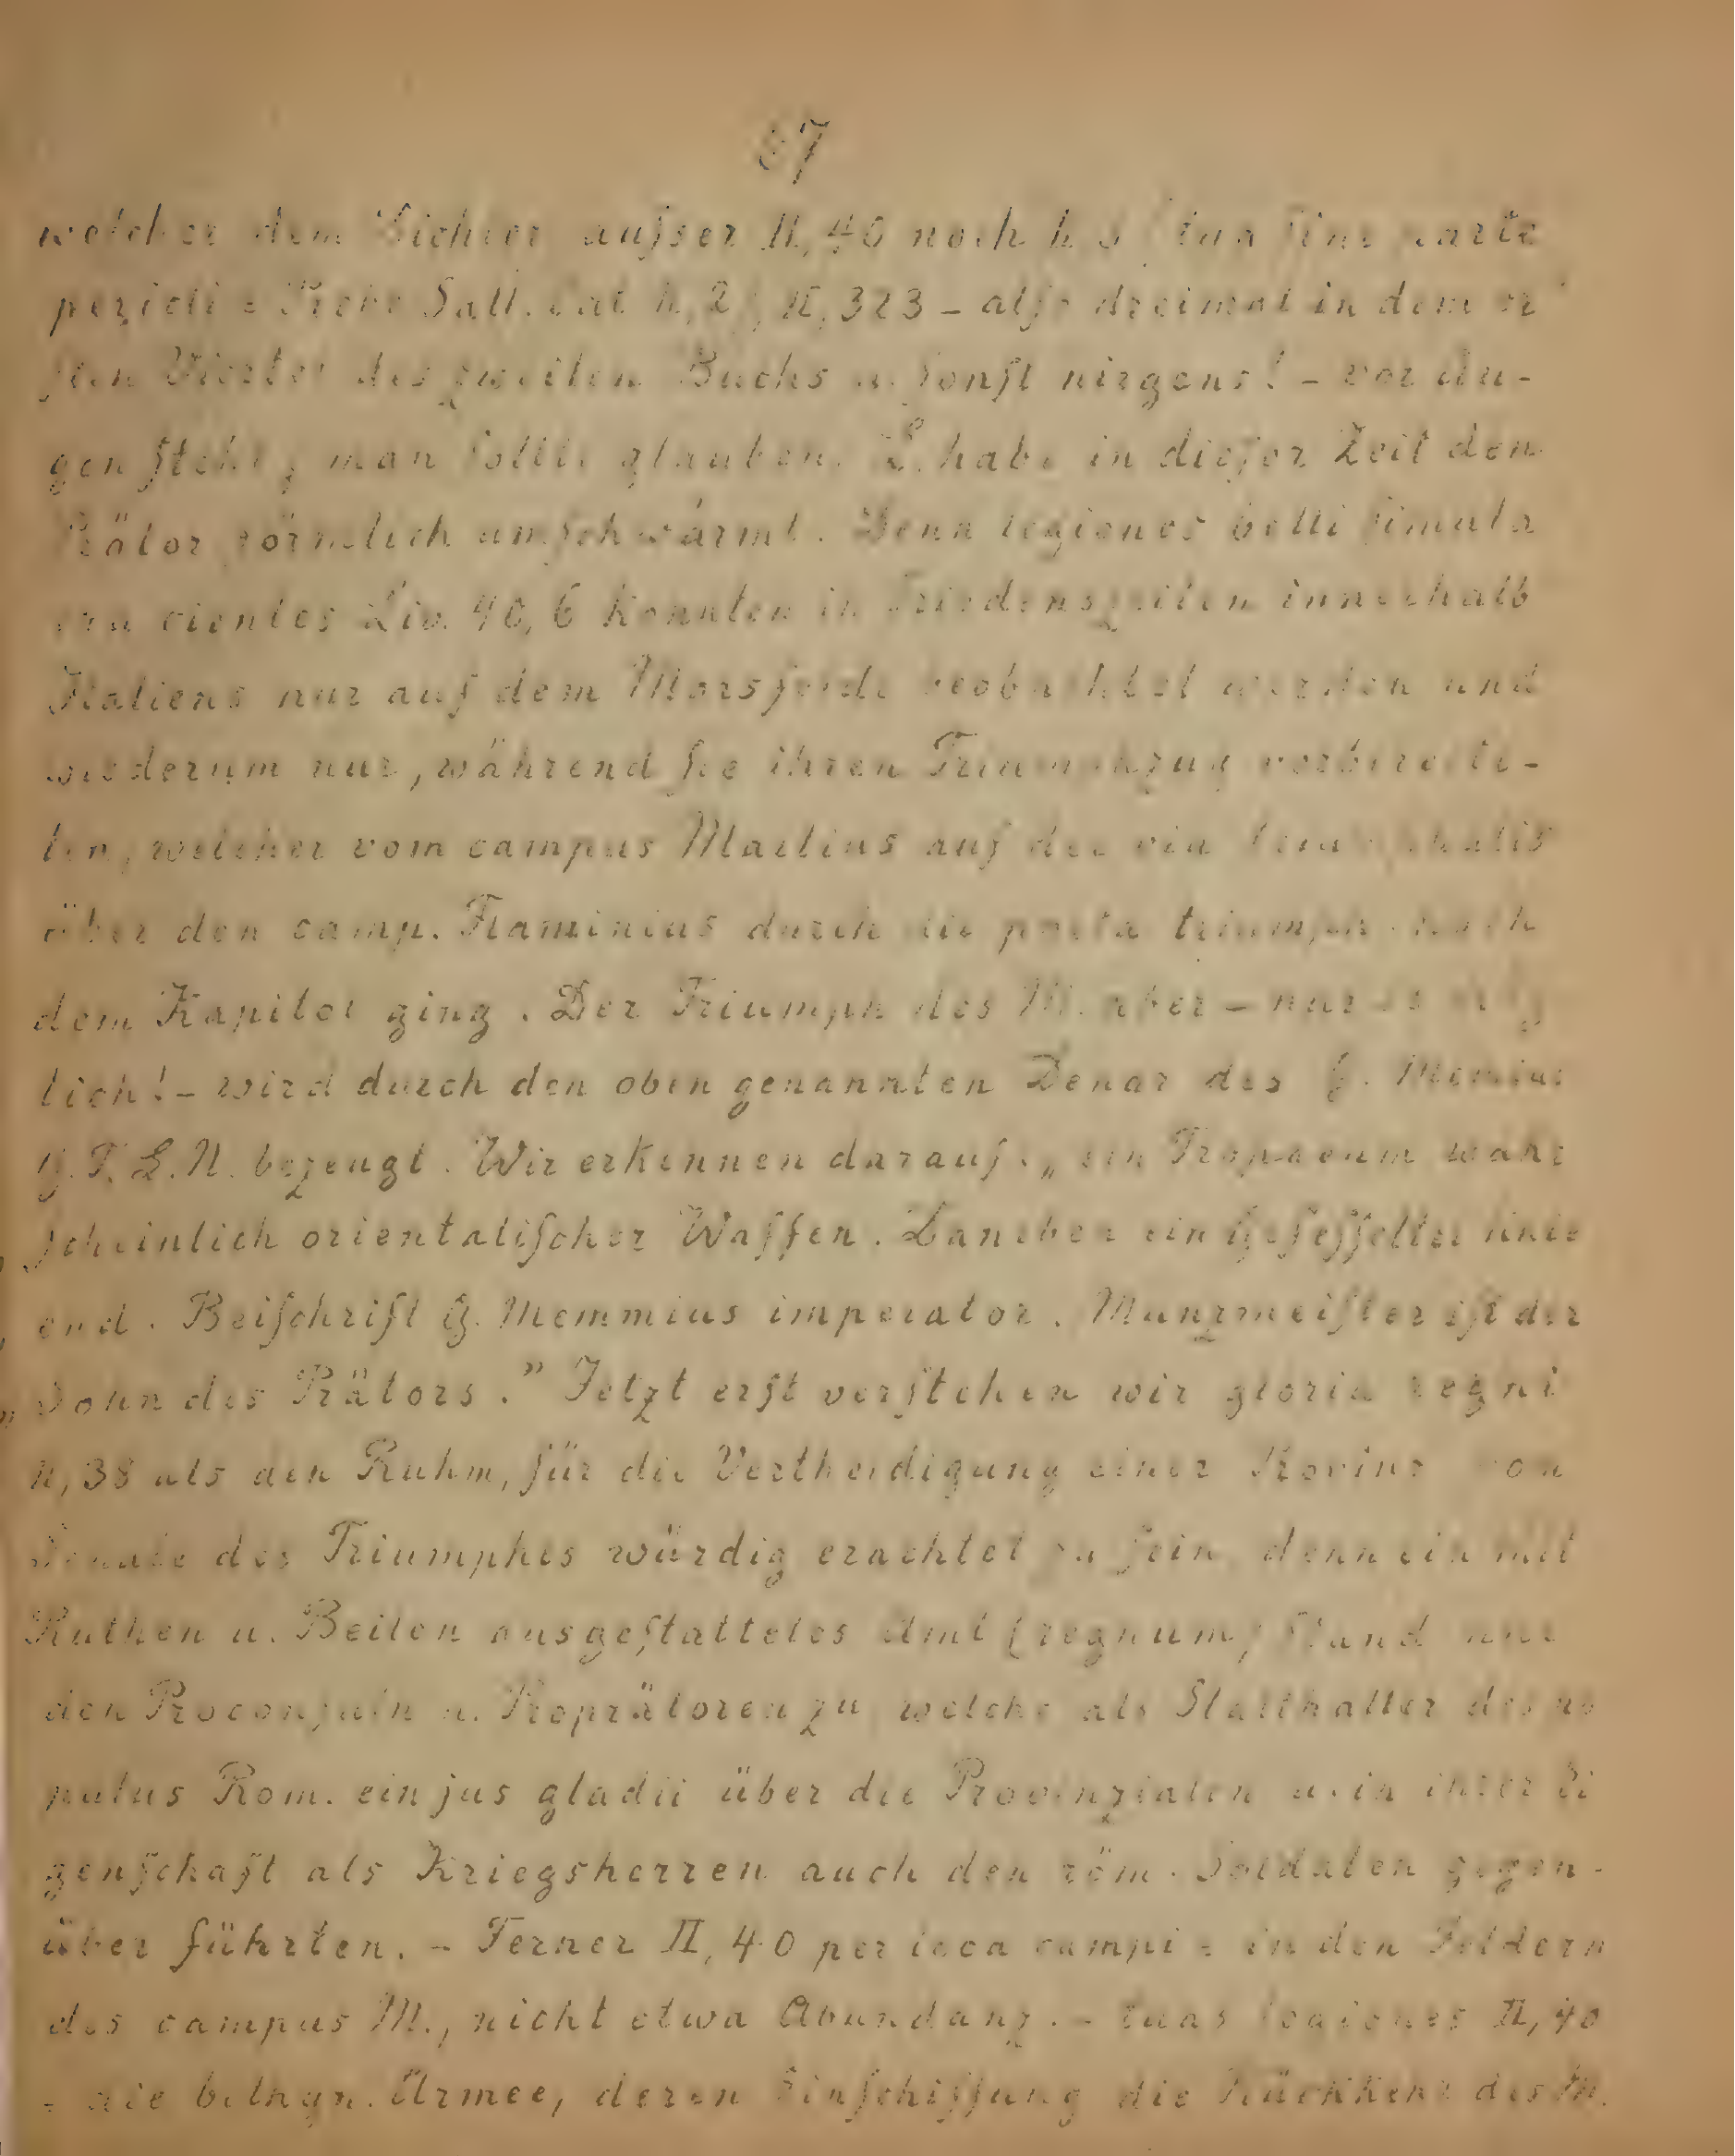 welcher dem Dichter auſser II, 40 noch II, 5 tua ſine parte
pericli = Sall. Cat. II, 323 – alſo dreimal in dem er
ſten Viertel des zweiten Buchs u. ſonſt nirgens! – vor Au-
gen ſteht, man ſollte glauben, L. habe in dieſer Zeit den
Prätor förmlich umſchwärmt. Denn legiones belli ſimula
cra cientes Liv. 40, 6 konnten in Friedenszeiten innerhalb
Italiens nur auf dem Marsfelde beobachtet werden und
wiederum nur, während ſie ihren Triumphzug vorbereite-
ten, welcher vom campus Martius auf der via triumphalis
über den camp. Flaminius durch die porta triumph. nach
dem Kapitol ging. Der Triumph des M. aber – nur
lich! – wird durch den oben genannten Denar des G. Memius
G. F. L. N. bezeugt. Wir erkennen darauf: „ein Tropaeum wahr
ſcheinlich orientaliſcher Waffen. Daneben ein Gefeſſelter knie
end. Beiſchrift G. Memmius imperator. Münzmeiſter iſt der
Sohn des Prätors." Jetzt erſt verſtehen wir gloria regni
II, 38 als den Ruhm, für die Vertheidigung einer Provinz vom
Senate des Triumphes würdig erachtet zu ſein, denn ein mit
Ruthen u. Beilen ausgeſtattetes Amt (regnum) ſtand nur
den Proconſuln u. Proprätoren zu, welche als Statthalter des po
pulus Rom. ein jus gladii über die Provinzialen u. in ihrer Ei
genſchaft als Kriegsherren auch den röm. Soldaten gegen-
über führten. – Ferner II, 40 per loca campi = in den Feldern
des campus M., nicht etwa Abundanz. – tuas legiones II, 40
= die bithyn. Armee, deren Einſchiffung die Rückkehr des M.